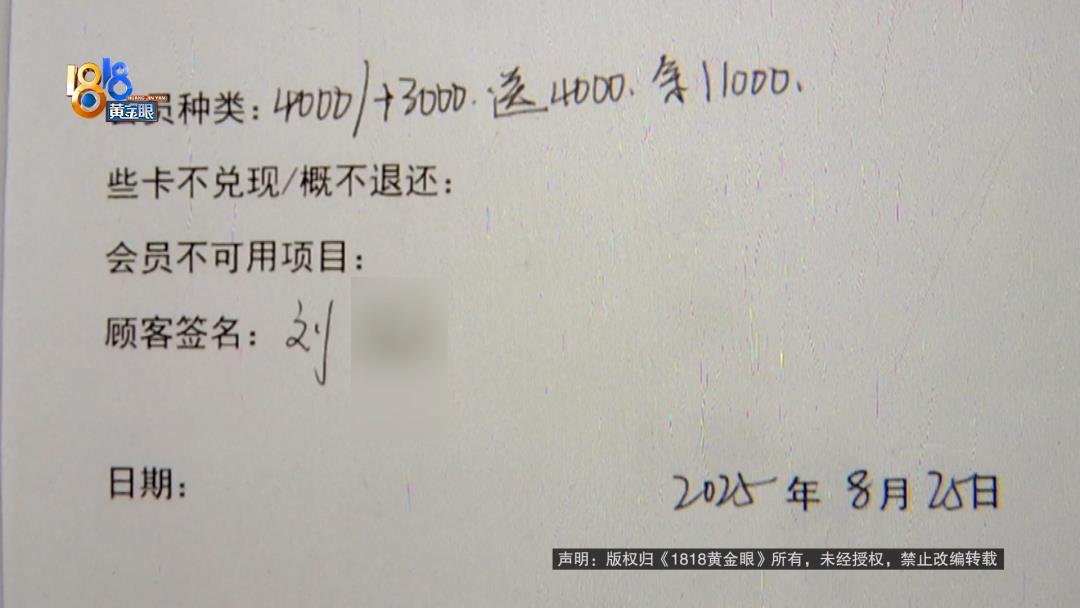 1818
HUANG JIN YAN
黄金眼
会员种类：4000/+3000.送4000.余11000.
些卡不兑现/概不退还：
会员不可用项目：
顾客签名：刘
日期：
2025年8月25日
声明：版权归《1818黄金眼》所有，未经授权，禁止改编转载